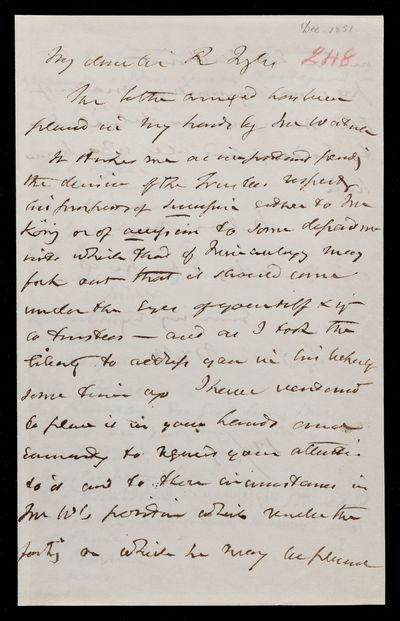 Dec. 1851
248
My dear Sir R
The letter annexed has been
placed in my hands by Mr
It strikes me as important
the decision of the Trustees
his prospects of either to Mr
König or of accession to some
into which that of Mineralogy may
fork out that it should come
under the eyes of yourself &
co trustees — and as I took the
liberty to address you in his behalf
some time ago I have ventured
to place it in your hands and
to request your
to it and to those circumstances in
Mr W's position which render the
on which he may be placed